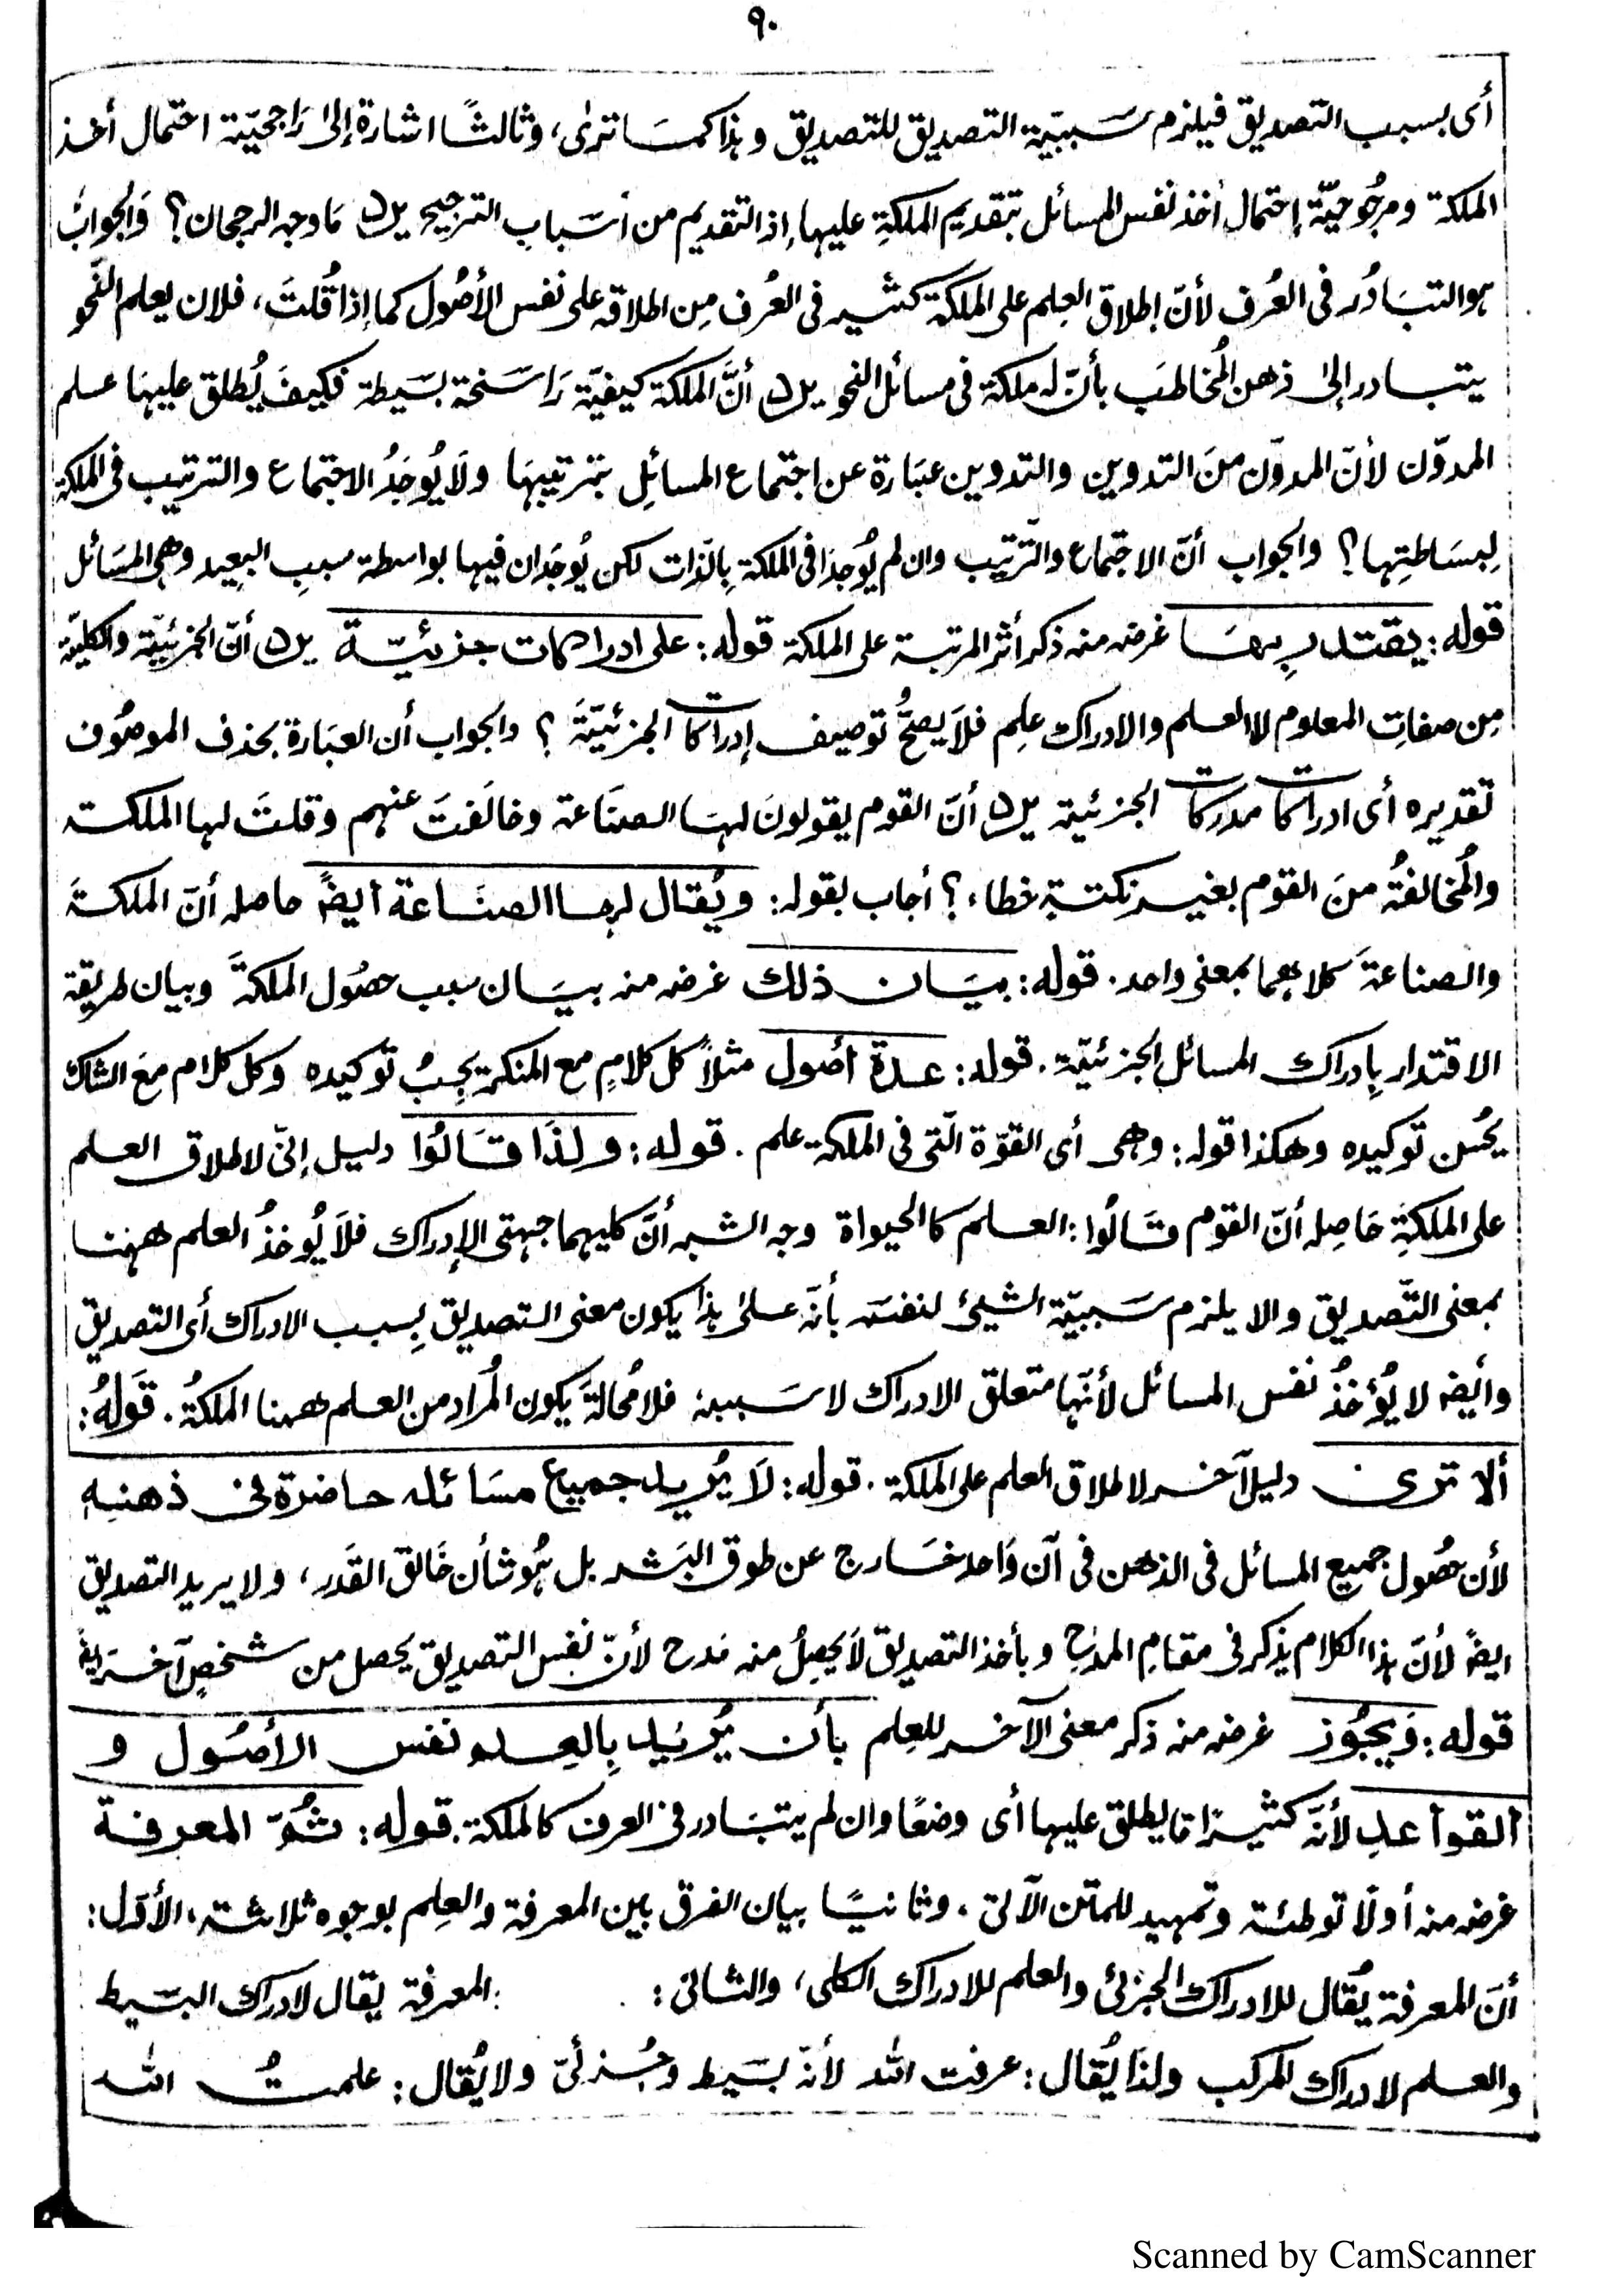 ٩٠
أى بسبب التصديق فيلزم سَببيّة التصديق للتصديق وهذا كمَا ترىٰ، وثالثًا اشارة إلىٰ رَاجحيّة احتمال أخذ
الملكة ومرجُوحيّة إحتمال أخذ نفس المسائل بتقديم الملكةِ عليها، إذ التقديم من أسَباب الترجيح يرد مَا وجه الرجحان؟ وَالجوابُ
هو التبَادُر فى العُرف لأنّ إطلاق العِلم على الملكة كثير فى العُرف مِن اطلاقه على نفس الأصُول كما إذا قُلتَ، فلان يعلم النَّحو
يتبادر إلىٰ ذهن المُخاطَب بأنّ له ملكة فى مسائل النحو يرد أنَّ الملكة كيفيّة رَاسَخة بسَيطة فكيفَ يُطلق عليهَا علم
المدوّن لأنّ المدوّن منَ التدوين والتدوين عبَارة عن اجتماع المسائلِ بترتيبهَا ولَا يُوجَدُ الاجتماع والترتيب فى الملكة
لِبسَاطتِها؟ والجواب أنّ الاجتماع والتّرتِيب وان لم يُوجدَا فى الملكة بالذات لكن يُوجَدان فيها بواسطة سببِ البعِيد وهى المسَائل
قوله: يقتدر بِهَا غرضه منه ذكر أثر المرتبة على الملكة قوله: على ادراكات جزئيّة يرد أنّ الجزئيّة والكليّة
مِن صفاتِ المعلوم لا العلم والادراك علِم فلَا يصحُّ توصيف إدراكات الجزئيّةَ؟ والجواب أن العبَارة بحذف الموصُوف
تقديره أى ادراكات مدركات الجزئية يرد أنّ القوم يقولونَ لهَا الصنَاعة وخالَفتَ عنهم وقلتَ لها الملكة
والمُخالفةُ منَ القوم بغير نكتةٍ خطاء؟ أجاب بقوله: ويُقال لها الصنَاعة أيضً حاصله أنّ الملكةَ
والصناعةَ كلاهما بمعنى واحد. قوله: بيَان ذلك غرضه منه بيَان سبب حصُول الملكةَ وبيان طريقة
الاقتدار بِادراك المسائل الجزئيّة. قوله: عدة أصُول مثلاً كل كلامٍ مع المنكر يجِبُ توكيده وكل كلام مَع الشاك
يحُسن توكيده وهكذا قوله: وهى أى القوّة الّتى فى الملكة علم. قوله: ولِذَا قَالُوا دليل إنّى لاطلاق العلم
على الملكةِ حَاصِله أنّ القوم قَالُوا: العلمَ كالحيواة وجه الشبه أنَّ كليهما جهتى الإدراك فلَا يُوخذُ العلم ههنا
بمعنى التّصديق والا يلزم سَببيّة الشيئ لنفسَه بأنّه علىٰ هذا يكون معنى التصديق بِسبب الادراك أى التصديق
وأيضً لا يُؤخذُ نفس المسائل لأنّها متعلق الادراك لا سَببهٖ فلا مُحالةَ يكون المُراد من العلم ههنا الملكةُ. قَولهُ:
ألا ترى دليل آخر لاطلاق العلم على الملكة. قوله: لَا يُريد جميع مسَائله حاضرة فى ذهنِه
لأن حصُول جميع المسائل فى الذهن فى آن وَاحد خَارج عن طوق البَشر بل هُو شأن خَالق القَدر، ولا يريد التصديق
ايضً لأنّ هذا الكلام يذكر فى مقامِ المدَحِ وبأخذ التصديق لَا يحصِلُ منه مَدح لأنّ نفس التصديق يحصل من شخصٍ آخر ايضً
قوله: وَيجُوز غرضه منه ذكر معنى الآخر للعِلم بأن يُرِيد بِالعِلم نفس الأصُول و
القواعدِ لأنّه كثيرًا مَا يطلق عليها أى وضعًا وان لم يتبَادر فى العرف كالملكة. قوله: ثُمّ المعرفة
غرضه منه أولًا توطئة وتمهيد للمتن الآتى. وثانيًا بيان الفرق بين المعرفة والعِلم بوجوه ثلاثة، الأوّل:
أنّ المعرفة يُقال للادراك الجزئى والعلم للادراك الكلى، والثانى: المعرفة يقال لادراك البسَيط
والعلم لادراك المركب ولذَا يُقال: عرفت الله لأنّه بسَيط وجُزئىّ ولا يُقال: علمتُ الله
Scanned by CamScanner